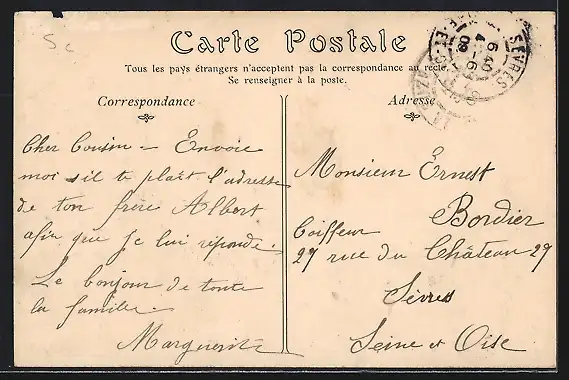 5c
Carte Postale
Tous les pays étrangers n'acceptent pas la correspondance au recto.
Se renseigner à la poste.
Correspondance
Adresse
SÈVRES
6 40
4 - 6
08
Cher Cousin - Envoie
moi s'il te plaît l'adresse
de ton frère Albert
afin que je lui réponde.
Le bonjour de toute
la famille.
Marguerite
Monsieur Ernest
Bordier
Coiffeur
27 rue du Château 27
Sèvres
Seine et Oise